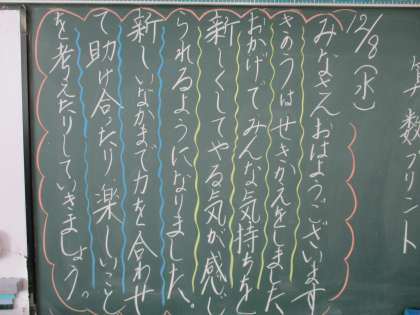 算数プリント
12/8(水)
みなさんおはようございます
きのうはせきかえをしました
おかげでみんな気持ちを
新しくしてやる気が感じ
られるようになりました。
新しいなかまで力を合わせ
て助け合ったり楽しいこと
を考えたりしていきましょう。